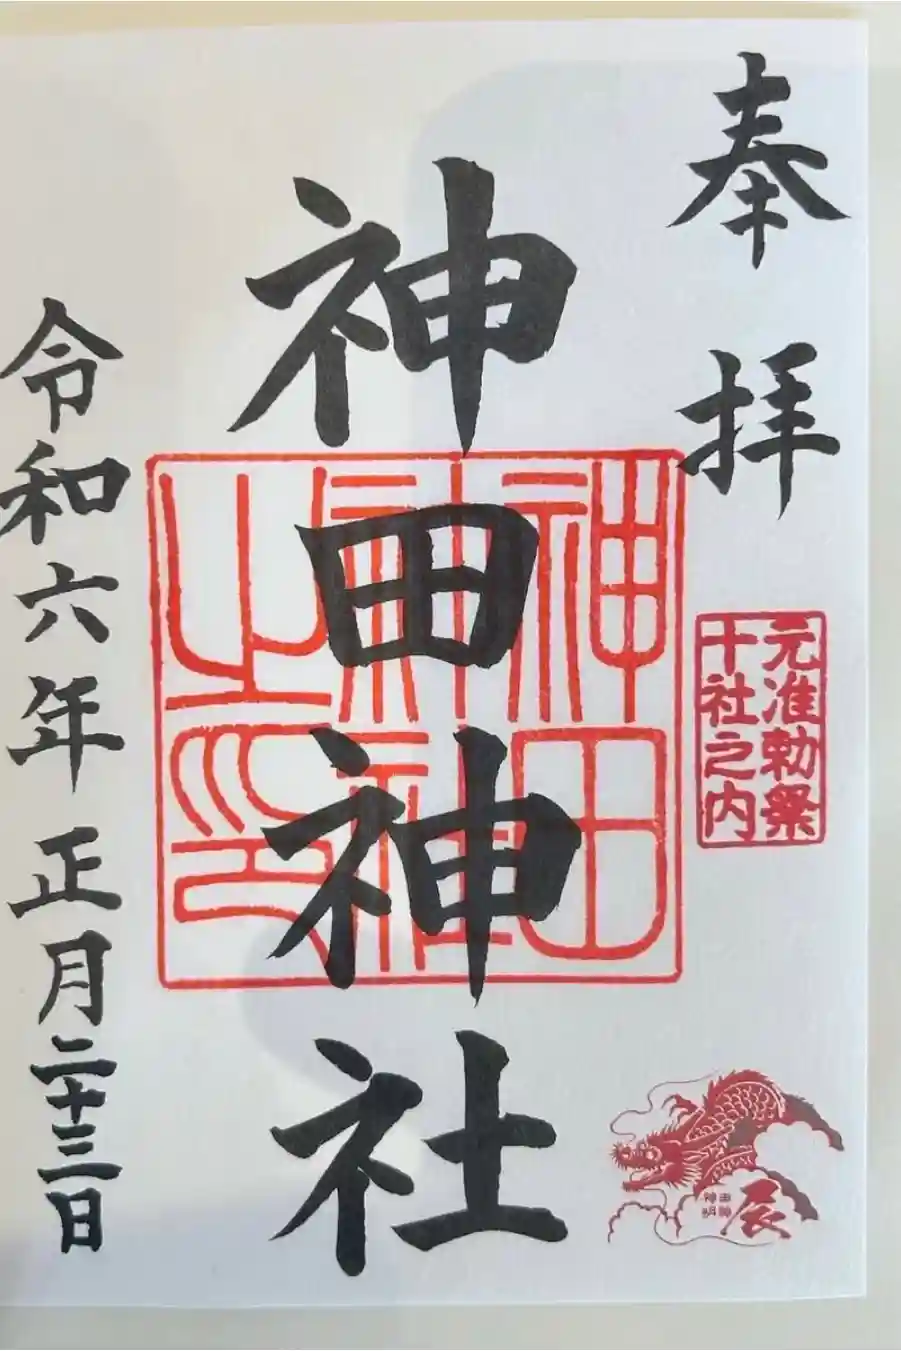 奉拝
元准勅祭
十社之内
神田神社
神田
神社
之印
辰
令和六年正月二十三日